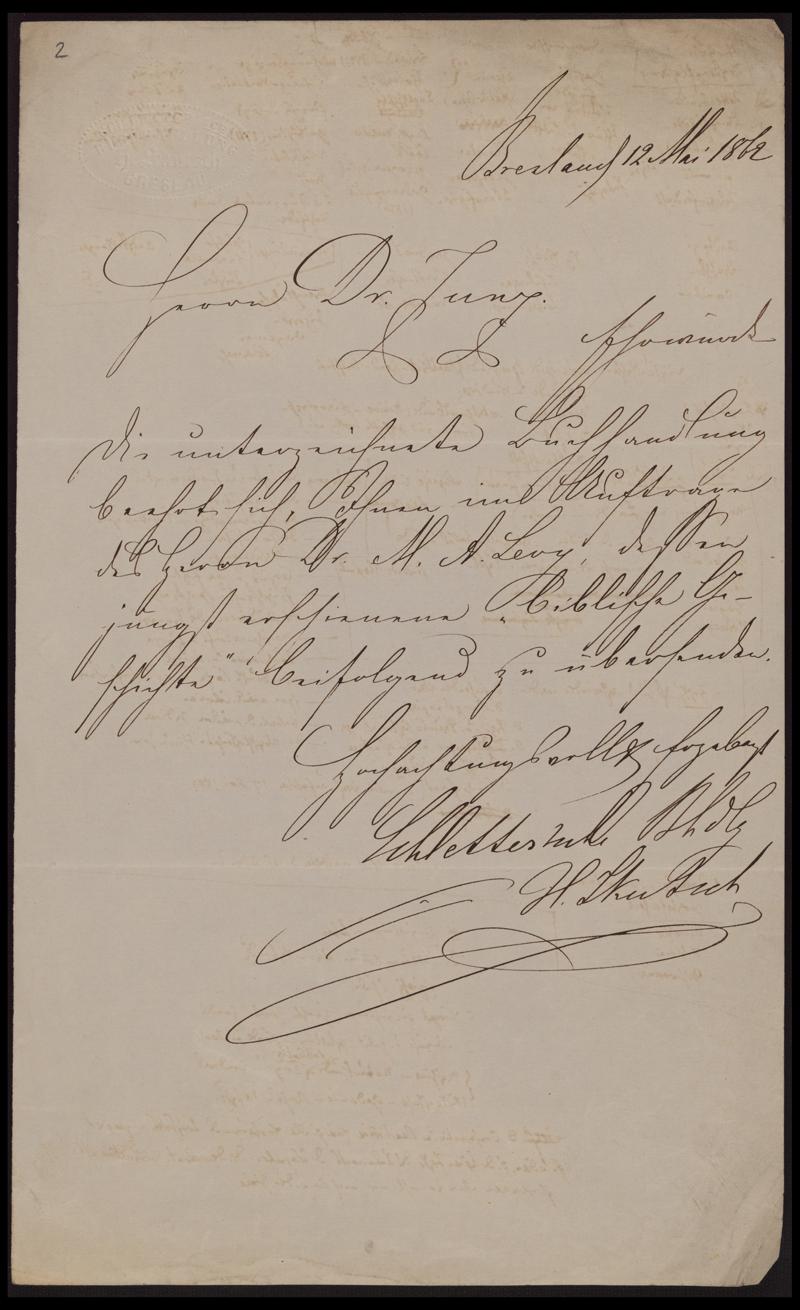 2
Breslau d 12 Mai 1862
Herrn Dr. Zunz.
Ehrwürd
Die unterzeichnete Buchhandlung
beehrt sich, Ihnen im Auftrage
des Herrn Dr. M. A. Levy, dessen
jüngst erschienene „Biblische Ge-
schichte" beifolgend zu übersenden.
Hochachtungsvollst ergebenst
Schletter'sche Bhdlg
H. Skutsch